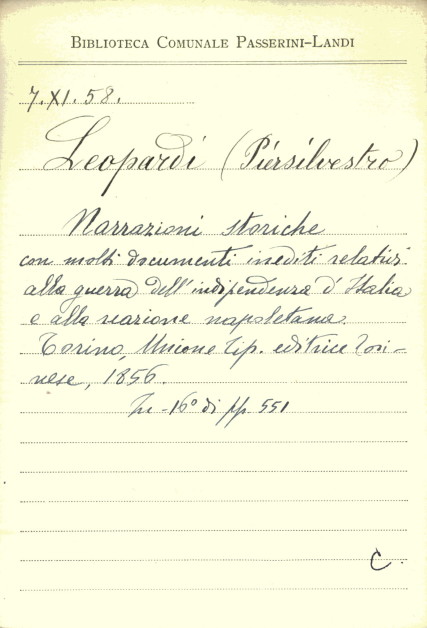 BIBLIOTECA COMUNALE PASSERINI-LANDI
7.XI.58.
Leopardi (Piersilvestro)
Narrazioni storiche
con molti documenti inediti relativi
alla guerra dell'indipendenza d'Italia
e alla reazione napoletana.
Torino, Unione Tip. editrice Tori-
nese, 1856.
In-16° di pp. 551
C.